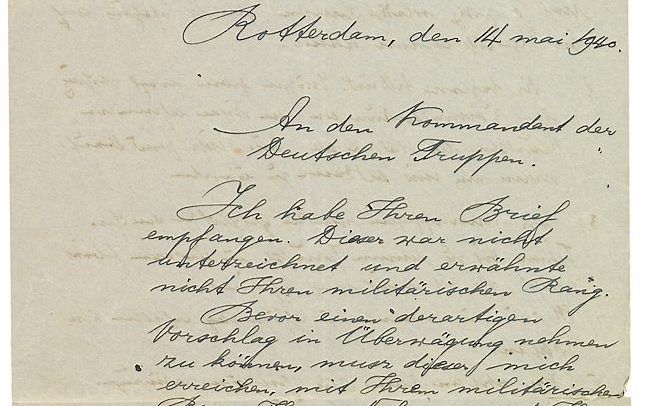 Rotterdam, den 14 mai 1940.
An den Kommandant der
Deutschen Truppen.
Ich habe Ihren Brief
empfangen. Dieser war nicht
unterzeichnet und erwähnte
nicht Ihren militärischen Rang.
Bevor einen derartigen
Vorschlag in Überwägung nehmen
zu können, musz dieser mich
erreichen, mit Ihren militärischen